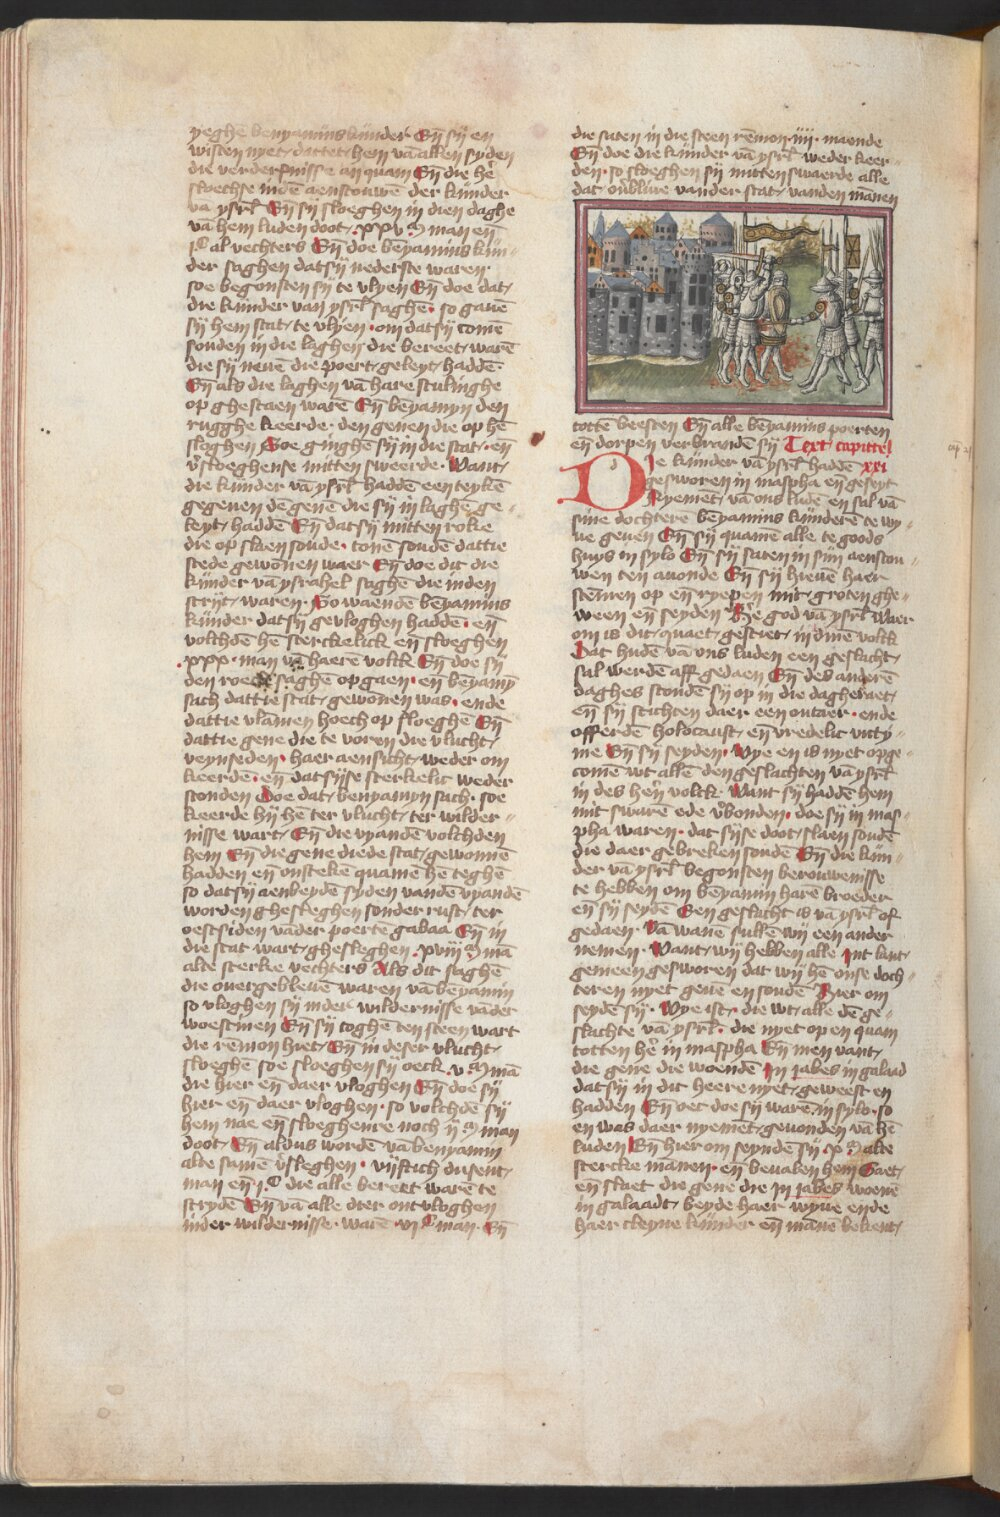 yeghē benyamīns kīnder Eñ sÿ en
wisten nyet dattet hem vā allen syden
die verderfnisse an quam Eñ die hēʳ
sloechse indē aenscouwē der kīnder
vā ysrł Eñ sÿ sloeghen in dien daghe
vā hem luden doot xxv ᴹ man eñ
jᶜ al vechters Eñ doe bēyamins kin-
der saghen dat sÿ nederste waren
soe begonsten sÿ te vlyen Eñ doe dat
die kīnder van ysrł saghē · so gauē
sÿ hem stat te vlyen · om dat sÿ comē
souden in die laghen die bereet warē
die sÿ neuē die poert geleyt haddē ·
Eñ als die laghen vā hare sculinghe
op ghestaen warē Eñ bēyamyn den
rugghe keerde · den genen die op hē
sloeghen Soe ginghē sÿ in die stat · eñ
v̄sloeghense mitten sweerde · Want
die kīnder vā ysrł haddē een teykē
gegeuen dē genē die sÿ in laghē ge-
leyt haddē Eñ dat sÿ mitten roke
die op slaen soude · tonē soudē dat die
stede gewōnen waer Eñ doe dit die
kīnder vā ysrahel saghē die inden
strijt waren · So waendē bēyamins
kīnder dat sÿ gevloghen haddē · eñ
volchdē hē sterckelick eñ sloeghen
· xxx · man vā haerē volck Eñ doe sÿ
den roeck saghē op gaen · eñ bēyamȳ
sach dat die stat gewōnen was · ende
dat die vlāmen hoech op sloeghē Eñ
dat die gene die te voren die vlucht
veynseden · haer aensicht weder om
keerdē · eñ dat sÿse sterkelic weder
stonden Doe dat benyamyn sach · soe
keerde hÿ hē ter vlucht ter wilder-
nisse wart Eñ die vyandē volchden
hem Eñ die gene die de stat gewonnē
hadden eñ onsteken quamē hē teghē
so dat sÿ aen beydē syden vandē vyandē
worden ghesleghen sonder rust ter
oestsiden vāder poerte gabaa Eñ in
die stat wart ghesleghen · xviij ᴹ mā
alte sterke vechters Als dit saghē
die ouergebleuē waren vā bēyamin
so vloghen sÿ inder wildernisse vāder
woestinen Eñ sÿ toghē ten steen wart
die rēmon hiet Eñ in deser vlucht
sloeghē soe sloeghen sÿ oeck · v ᴹ mā
die hier eñ daer vloghen Eñ doe sÿ
hier eñ daer vloghen · so volchdē sÿ
hem nae eñ sloeghenre noch ij ᴹ man
doot · Eñ aldus wordē vā benyamin
alte samē v̄sleghen · vijftich dusent
man eñ jᶜ die alle bereet warē te
strydē Eñ vā alle der ontvloghen
inder wildernisse · warē vi ᶜ man · Eñ
die saten in die steen rēmon · iiij · maende
Eñ doe die kīnder vā ysrł weder keer-
den · so sloeghen sÿ mitten swaerde alle
dat ouˢbliue vander stat · vanden mānen
totte beesten Eñ alle bēyamins poerten
eñ dorpen verbrandē sÿ Text capittel
xxi
Die kīnder vā ysrł haddē
gesworen in maspha eñ geseyt
Nyemēt vā ons ludē en sal vā
sine dochterē bēyamins kīnderē te wy-
ue geuen Eñ sÿ quamē alle te goods
huys in sylo Eñ sÿ saten in sijn aenscou-
wen ten auonde Eñ sÿ hieuē haer
stēmen op eñ ryepen mit groten ghe-
ween eñ seyden Hēʳ god vā ysrł Waer
om is dit quaet gesciet in dinē volck
Dat hudē vā ons luden een geslacht
sal werdē aff gedaen Eñ des anderē
daghes stondē sÿ op in die dagheraet
eñ sÿ stichten daer een outaer · ende
offerdē holocaust eñ vredelic victy-
me Eñ sÿ seyden · Wye en is nyet opge-
comē wt allē den geslachten vā ysrł
in des hēn volck · Want sÿ haddē hem
mit swarē ede v̄bonden · doe sÿ in mas-
pha waren · dat sÿse doot slaen soudē
die daer gebreken soudē Eñ die kīn-
der vā ysrł begonsten berouwenisse
te hebben om bēyamin harē broeder
eñ sÿ seydē Een geslacht is vā ysrł of
gedaen · Vā wanē sullē wÿ een ander
nemen · Want wÿ hebben alle Int lant
gemeen gesworen dat wÿ hē onse doch-
teren nyet geuē en soudē Hier om
seydē sÿ · Wye ist · die wt alle dē ge-
slachte vā ysrł · die nyet op en quam
totten hēʳ in maspha Eñ men vant
die gene die woendē In jabes in galaad
dat sÿ in dit heere nyet geweest en
hadden Eñ oec doe sÿ warē in sylo · so
en was daer nyemēt gevonden vā hē
luden Eñ hier om seyndē sÿ · x ᴹ alte
stercke mānen · eñ beualen hem Gaet
eñ slaet die gene die In jabes woenē
in galaadt beyde haer wyue ende
haer cleyne kīnder eñ mānē bekent
cap 21